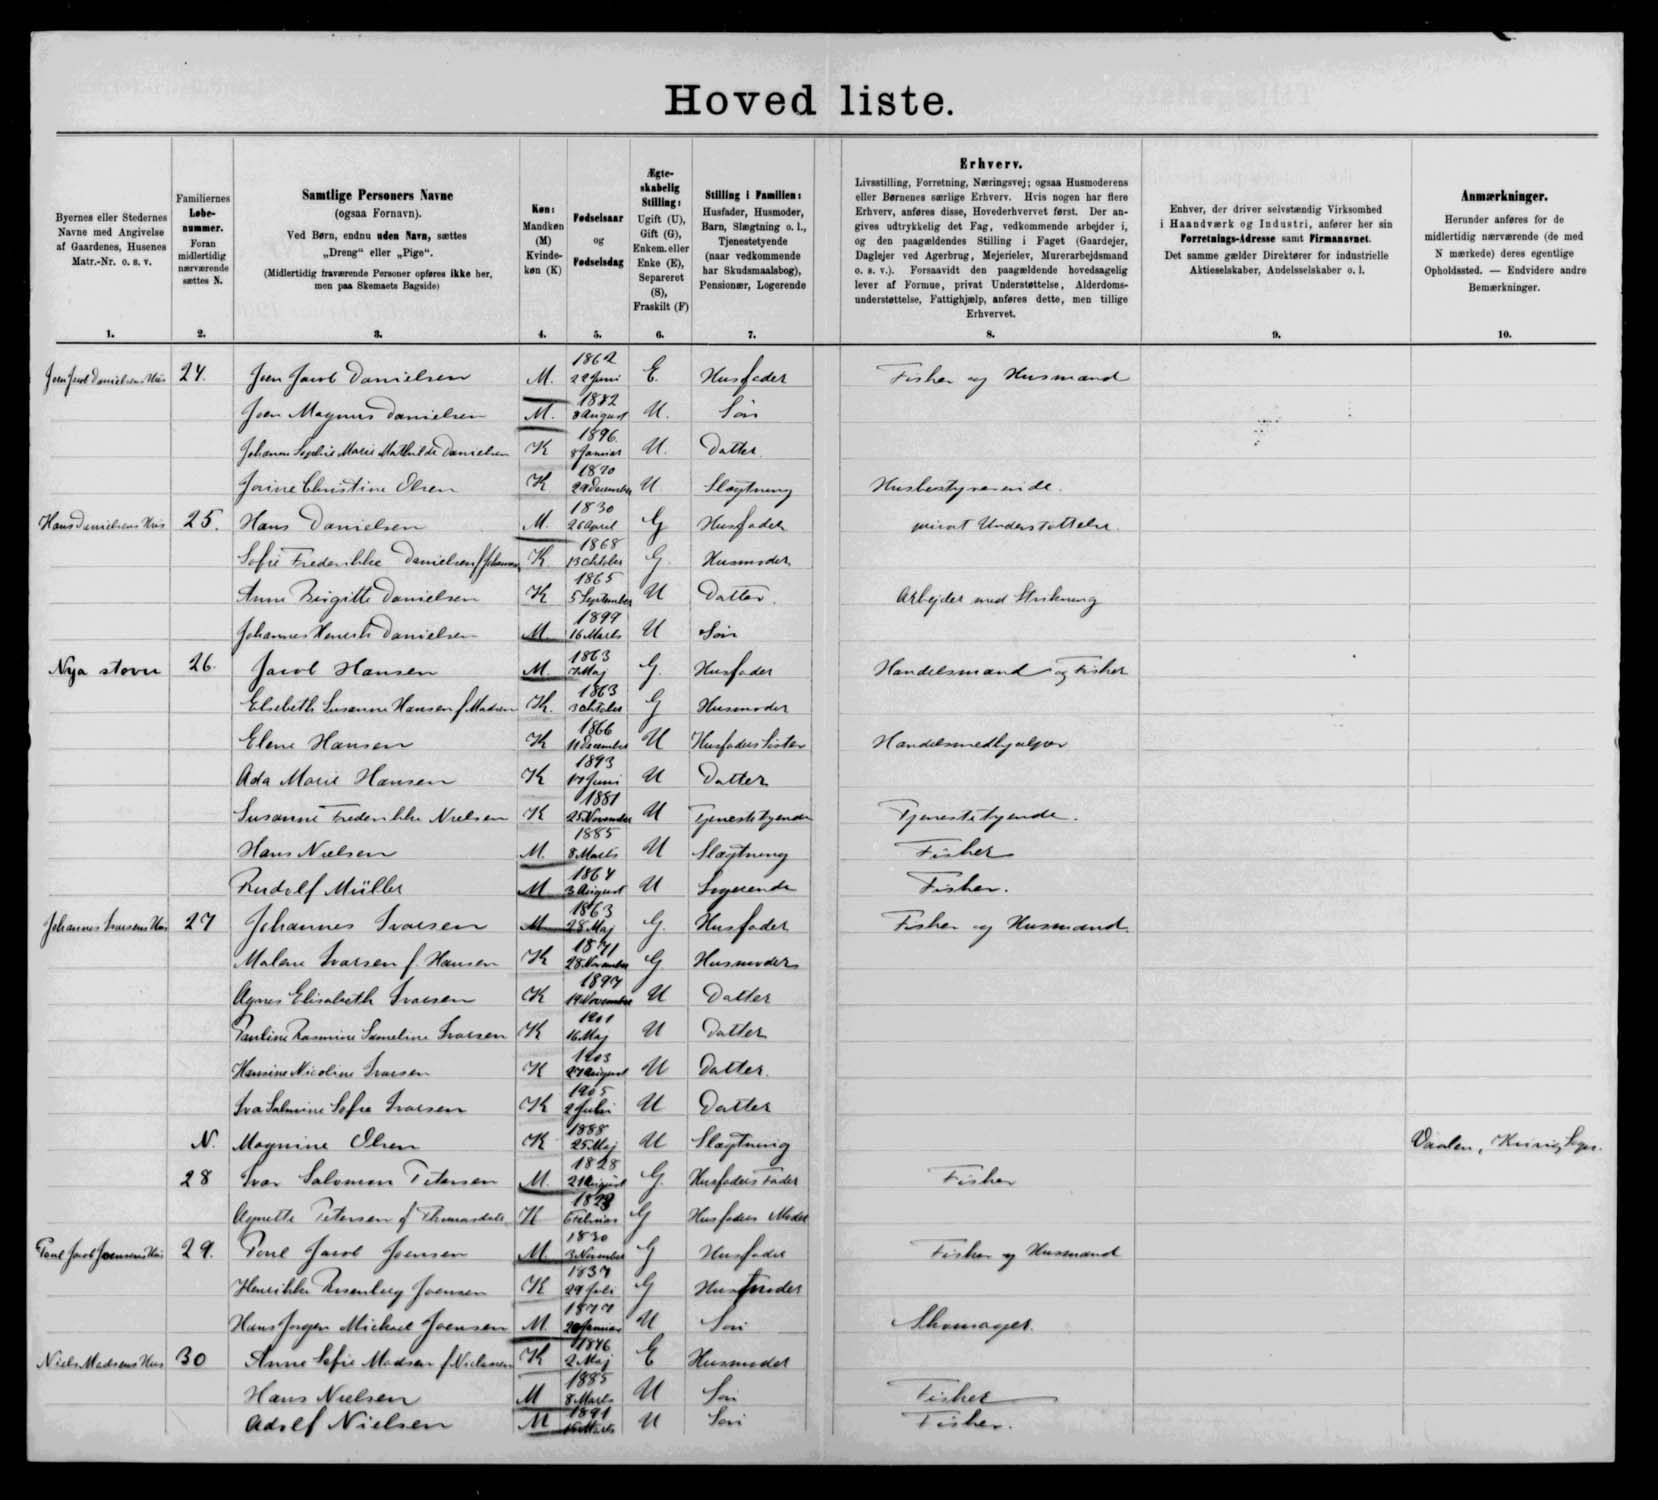 Hovedliste.
Byernes eller Stedernes
Navne med Angivelse
af Gaardenes, Husenes
Matr.-Nr. o. s. v.
1.
Familiernes
Løbe-
nummer.
Foran
midlertidig
nærværende
sættes N.
2.
Samtlige Personers Navne
(ogsaa Fornavn).
Ved Børn, endnu uden Navn, sættes
„Dreng“ eller „Pige“.
(Midlertidig fraværende Personer opføres ikke her,
men paa Skemaets Bagside)
3.
Køn:
Mandkøn
(M)
Kvinde-
køn (K)
4.
Fødselsaar
og
Fødselsdag
5.
Ægte-
skabelig
Stilling:
Ugift (U),
Gift (G),
Enkem. eller
Enke (E),
Separeret
(S),
Fraskilt (F)
6.
Stilling i Familien:
Husfader, Husmoder,
Barn, Slægtning o. l.,
Tjenestetyende
(naar vedkommende
har Skudsmaalsbog),
Pensionær, Logerende
7.
Erhverv.
Livsstilling, Forretning, Næringsvej; ogsaa Husmoderens
eller Børnenes særlige Erhverv. Hvis nogen har flere
Erhverv, anføres disse, Hovederhvervet først. Der an-
gives udtrykkelig det Fag, vedkommende arbejder i,
og den paagældendes Stilling i Faget (Gaardejer,
Daglejer ved Agerbrug, Mejerielev, Murerarbejdsmand
o. s. v.). Forsaavidt den paagældende hovedsagelig
lever af Formue, privat Understøttelse, Alderdoms-
understøttelse, Fattighjælp, anføres dette, men tillige
Erhvervet.
8.
Enhver, der driver selvstændig Virksomhed
i Haandværk og Industri, anfører her sin
Forretnings-Adresse samt Firmanavnet.
Det samme gælder Direktører for industrielle
Aktieselskaber, Andelsselskaber o. l.
9.
Anmærkninger.
Herunder anføres for de
midlertidig nærværende (de med
N mærkede) deres egentlige
Opholdssted. — Endvidere andre
Bemærkninger.
10.
Joen Jacob Danielsens Hus 24. Joen Jacob Danielsen M. 1862 22 Juni E. Husfader Fisker og Husmand
Joen Magnus Danielsen M. 1882 8 August U. Søn
Johanne Sophie Marie Mathilde Danielsen K 1896 8 Januar U. Datter
Jorine Christine Olsen K 1870 29 December U. Slægtning Husbestyrerinde.
Hans Danielsens Hus 25. Hans Danielsen M. 1830 26 April G Husfader privat Understøttelse.
Sofie Frederikke Danielsen f. K 1868 13 Oktober G. Husmoder
Anne Birgitte Danielsen K 1865 5 September U Datter. Arbejder med Strikning
Johannes Henrik Danielsen M 1899 16 Marts U Søn
Nya stovu 26. Jacob Hansen M. 1863 7 Maj G. Husfader Handelsmand og Fisker
Elsebeth Susanne Hansen f. Madsen K. 1863 3 Oktober G Husmoder
Elene Hansen K 1866 11 December U Husfaders Søster Handelsmedhjælper
Ada Marie Hansen K 1893 17 Juni U Datter
Susanne Frederikke Nielsen K 1881 25 November U Tjenestetyende Tjenestetyende.
Hans Nielsen M. 1885 8 Marts U Slægtning Fisker
Rudolf Müller M 1864 3 August U Logerende Fisker.
Johannes Ivarsens Hus 27 Johannes Ivarsen M 1863 28 Maj G. Husfader Fisker og Husmand.
Malene Ivarsen f. Hansen K 1871 28 November G. Husmoder
Agnes Elisabeth Ivarsen K 1897 19 November U Datter
Pauline Rasmine Sameline Ivarsen K 1901 16 Maj U Datter
Hansine Nicoline Ivarsen K 1903 27 August U Datter.
Iva Salmine Sofie Ivarsen K 1905 2 Juli U Datter
N. Magnine Olsen K 1888 25 Maj U Slægtning Kvivig Sogn.
28 Ivar Salomon Petersen M. 1828 21 August G. Husfaders Fader Fisker
Agnette Petersen f. Thomasdatter K Februar G Husfaders Moder
Poul Jacob Joensens Hus 29. Poul Jacob Joensen M. 1830 3 November G Husfader Fisker og Husmand
Henrikke Rosenberg Joensen K 1837 29 Juli G Husmoder
Hans Jørgen Michael Joensen M. 1877 Januar U Søn Skomager.
Niels Madsens Hus 30 Anne Sofie Madsen f. Nielsen K 1846 2 Maj E Husmoder
Hans Nielsen M 1885 8 Marts U Søn Fisker
Adolf Nielsen M 1891 15 Marts U Søn Fisker.